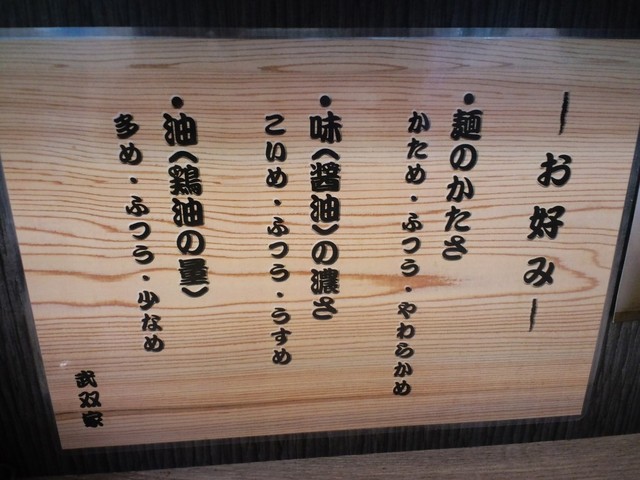 ーお好みー
●麺のかたさ
かため・ふつう・やわらかめ
●味(醤油)の濃さ
こいめ・ふつう・うすめ
●油(鶏油の量)
多め・ふつう・少なめ
武双家